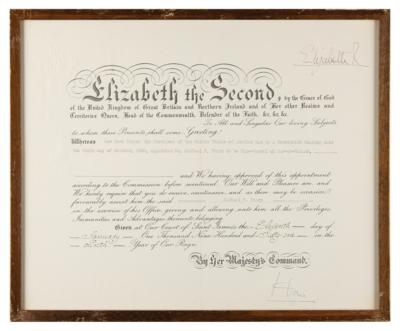 Elizabeth R
Elizabeth the Second, by the Grace of God
of the United Kingdom of Great Britain and Northern Ireland and of Her other Realms and
Territories Queen, Head of the Commonwealth, Defender of the Faith, &c, &c, &c.
To All and Singular Our loving Subjects
to whom these Presents shall come, Greeting!
Whereas the President of the United States of America has by a Commission bearing date
the day of October, 1960, appointed
and We having approved of this appointment
according to the Commission before mentioned, Our Will and Pleasure are, and
We hereby require that you do receive, countenance, and as there may be occasion
favourably assist him the said
in the exercise of his Office, giving and allowing unto him all the Privileges,
Immunities and Advantages thereunto belonging.
Given at Our Court of Saint James's, the day of
January One Thousand Nine Hundred and Sixty one in the
Year of Our Reign.
By Her Majesty's Command.